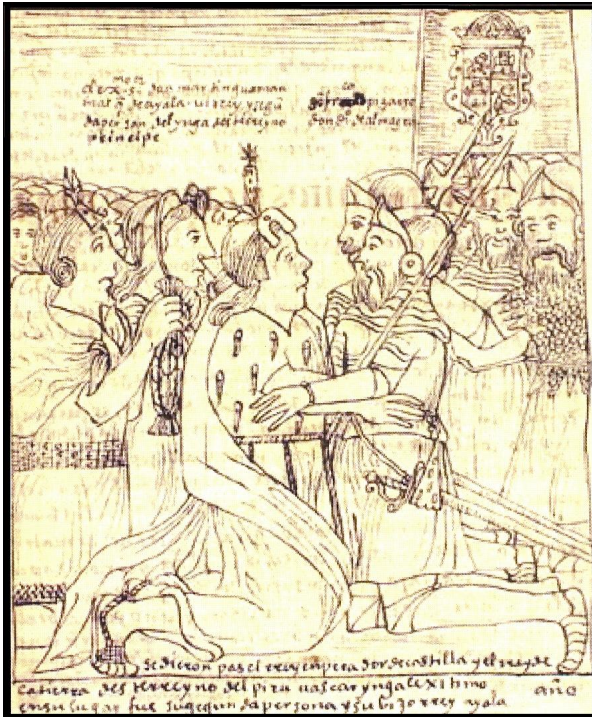 dō martin guaman
mal q̄ de ayala · virrey y segū
da persona del ynga deste rreyno
principe
pizarro
don di° de almagro
se dieron pas el rrey enperador de castilla y el rrey de
la tierra deste rreyno del piru uascar ynga lexitimo
en su lugar fue su segunda persona y su bizorrey ayala
año